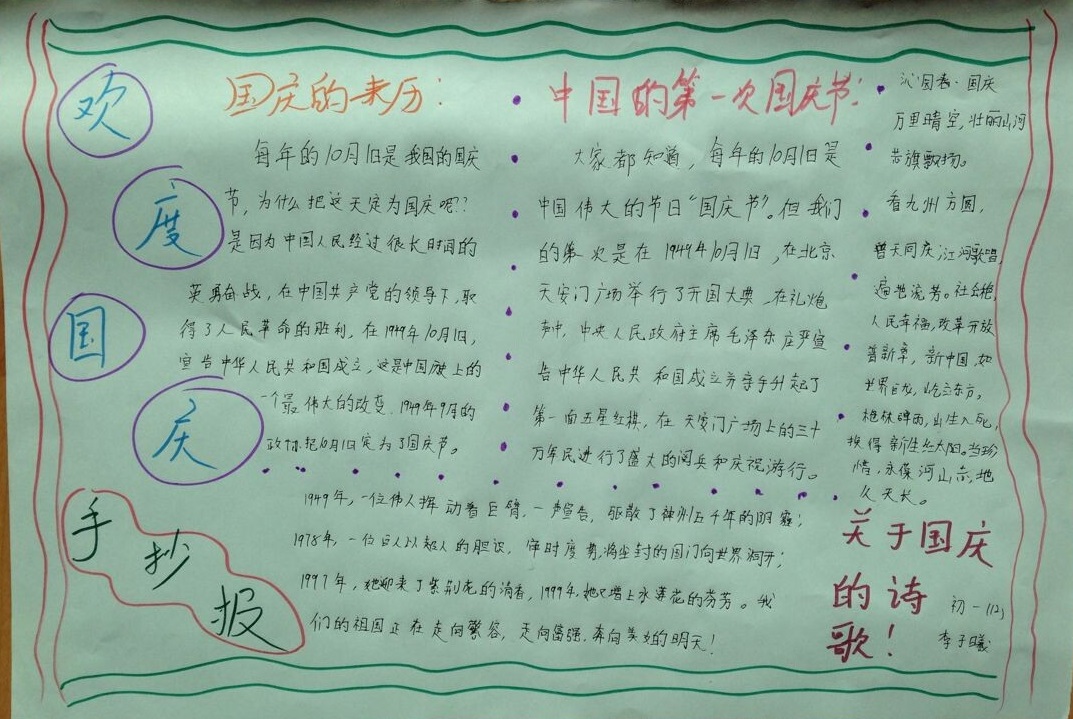 欢
度
国
庆
手
抄
报
国庆的来历：
每年的10月1日是我国的国庆
节，为什么把这天定为国庆呢??
是因为中国人民经过很长时间的
英勇奋战，在中国共产党的领导下，取
得了人民革命的胜利，在1949年10月1日，
宣告中华人民共和国成立，这是中国历史上的
一个最伟大的改变，1949年9月的
政协把10月1日定为了国庆节。
中国的第一次国庆节：
大家都知道，每年的10月1日是
中国伟大的节日“国庆节”。但我们
的第一次是在1949年10月1日，在北京
天安门广场举行了开国大典，在礼炮
声中，中央人民政府主席毛泽东庄严宣
告中华人民共和国成立并亲手升起了
第一面五星红旗，在天安门广场上的三十
万军民进行了盛大的阅兵和庆祝游行。
沁园春·国庆
万里晴空，壮丽山河
共旗飘扬。
看九州方圆，
普天同庆；江河歌唱，
遍地流芳。社会稳，
人民幸福，改革开放
谱新章，新中国，如
世界巨龙，屹立东方，
枪林弹雨，出生入死，
换得新生红太阳。当珍
惜，永保河山赤，地
久天长。
1949年，一位伟人挥动着巨臂，一声宣告，驱散了神州五千年的阴霾；
1978年，一位巨人以超人的胆识，审时度势，将尘封的国门向世界洞开；
1997年，她迎来了紫荆花的清香，1999年，她又增上水莲花的芬芳。我
们的祖国正在走向繁荣，走向富强，奔向美好的明天！
关于国庆
的诗
歌！
初一(12)
李子曦